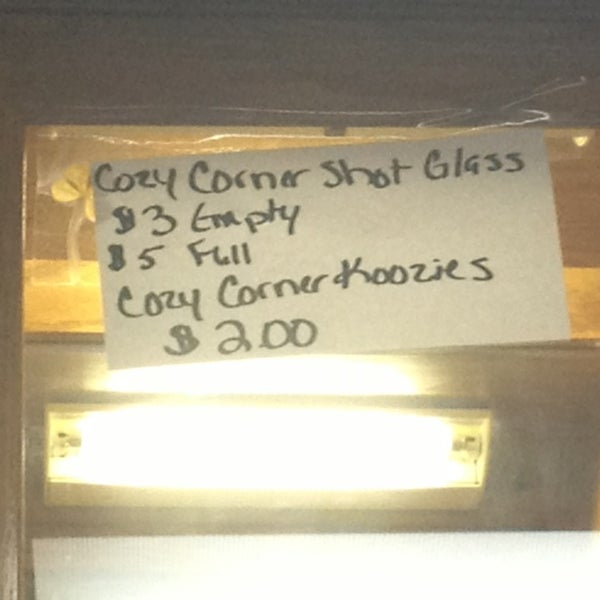 Cozy Corner Shot Glass
$3 Empty
$5 Full
Cozy Corner Koozies
$2.00